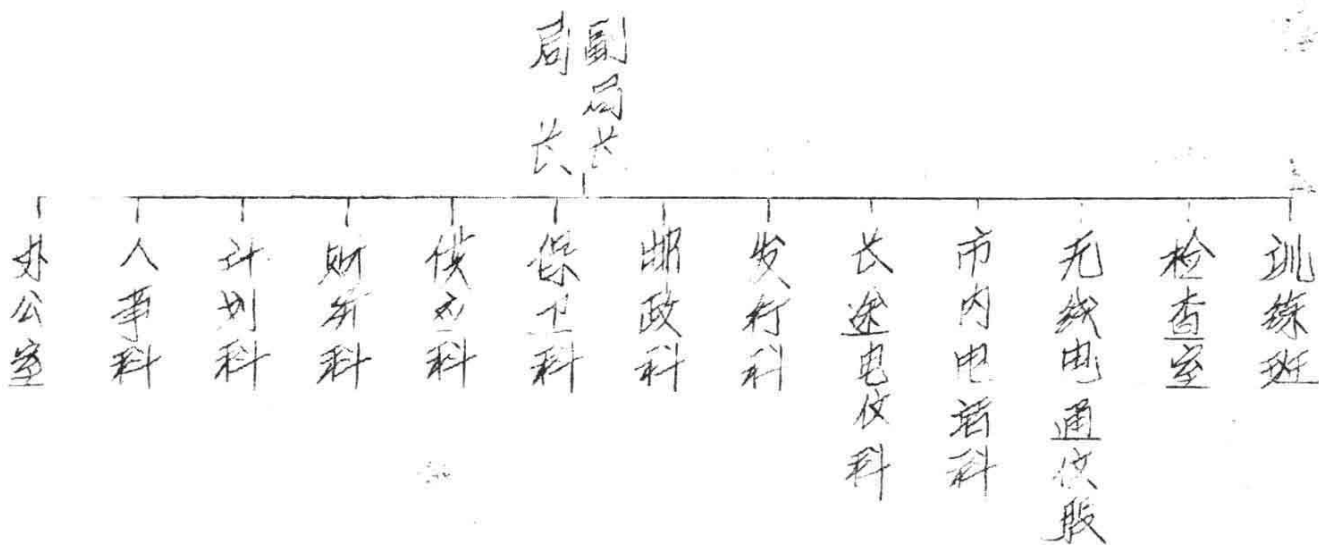 局长
副局长
办公室
人事科
计划科
财务科
供应科
保卫科
邮政科
发行科
长途电仪科
市内电话科
无线电通仪股
检查室
训练班